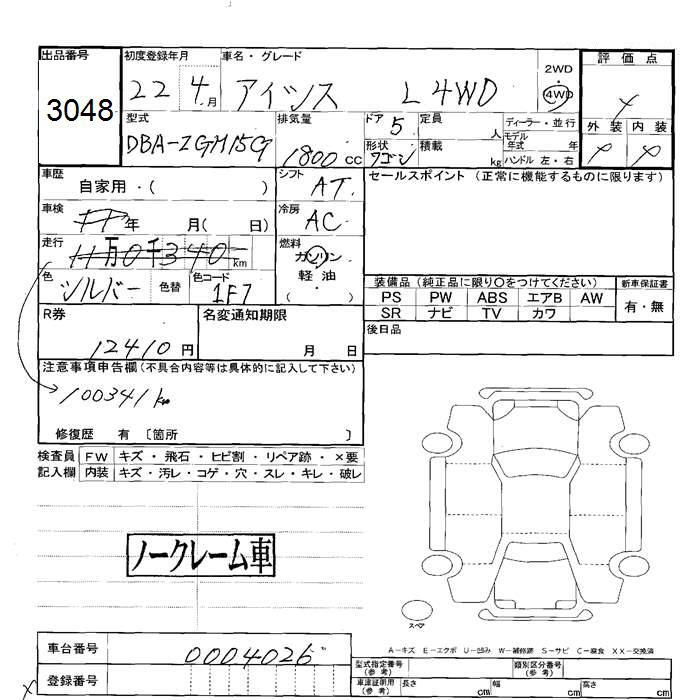 出品番号 初度登録年月 車名・グレード 評価点
3048 22 4月 アイシス L 4WD 2WD
4WD
型式 排気量 ドア 5 定員 人 ディーラー・並行 外装 内装
DBA-ZGM15G 1800cc 形状 ワゴン 積載 kg モデル年式 年
ハンドル 左・右
車歴 自家用・( ) シフト AT セールスポイント(正常に機能するものに限ります)
車検 年 月( 日) 冷房 AC
走行 11万0千340km 燃料 ガソリン
軽・油
( )
色 シルバー 色替 色コード 1F7
装備品(純正品に限り〇をつけてください) 新車保証書
PS PW ABS エアB AW 有・無
SR ナビ TV カワ
R券 12410円 名変通知期限 月 日 後日品
注意事項申告欄(不具合内容等は具体的に記入して下さい)
100341km
修復歴 有 〔箇所 〕
検査員 FW キズ・飛石・ヒビ割・リペア跡・×要
記入欄 内装 キズ・汚レ・コゲ・穴・スレ・キレ・破レ
ノークレーム車
スペア
A-キズ E-エクボ U-凹み W-補修跡 S-サビ C-腐食 XX-交換済
車台番号 0004026 型式指定番号(参考) 類別区分番号(参考)
登録番号 車庫証明用(参考) 長さ cm 幅 cm 高さ cm